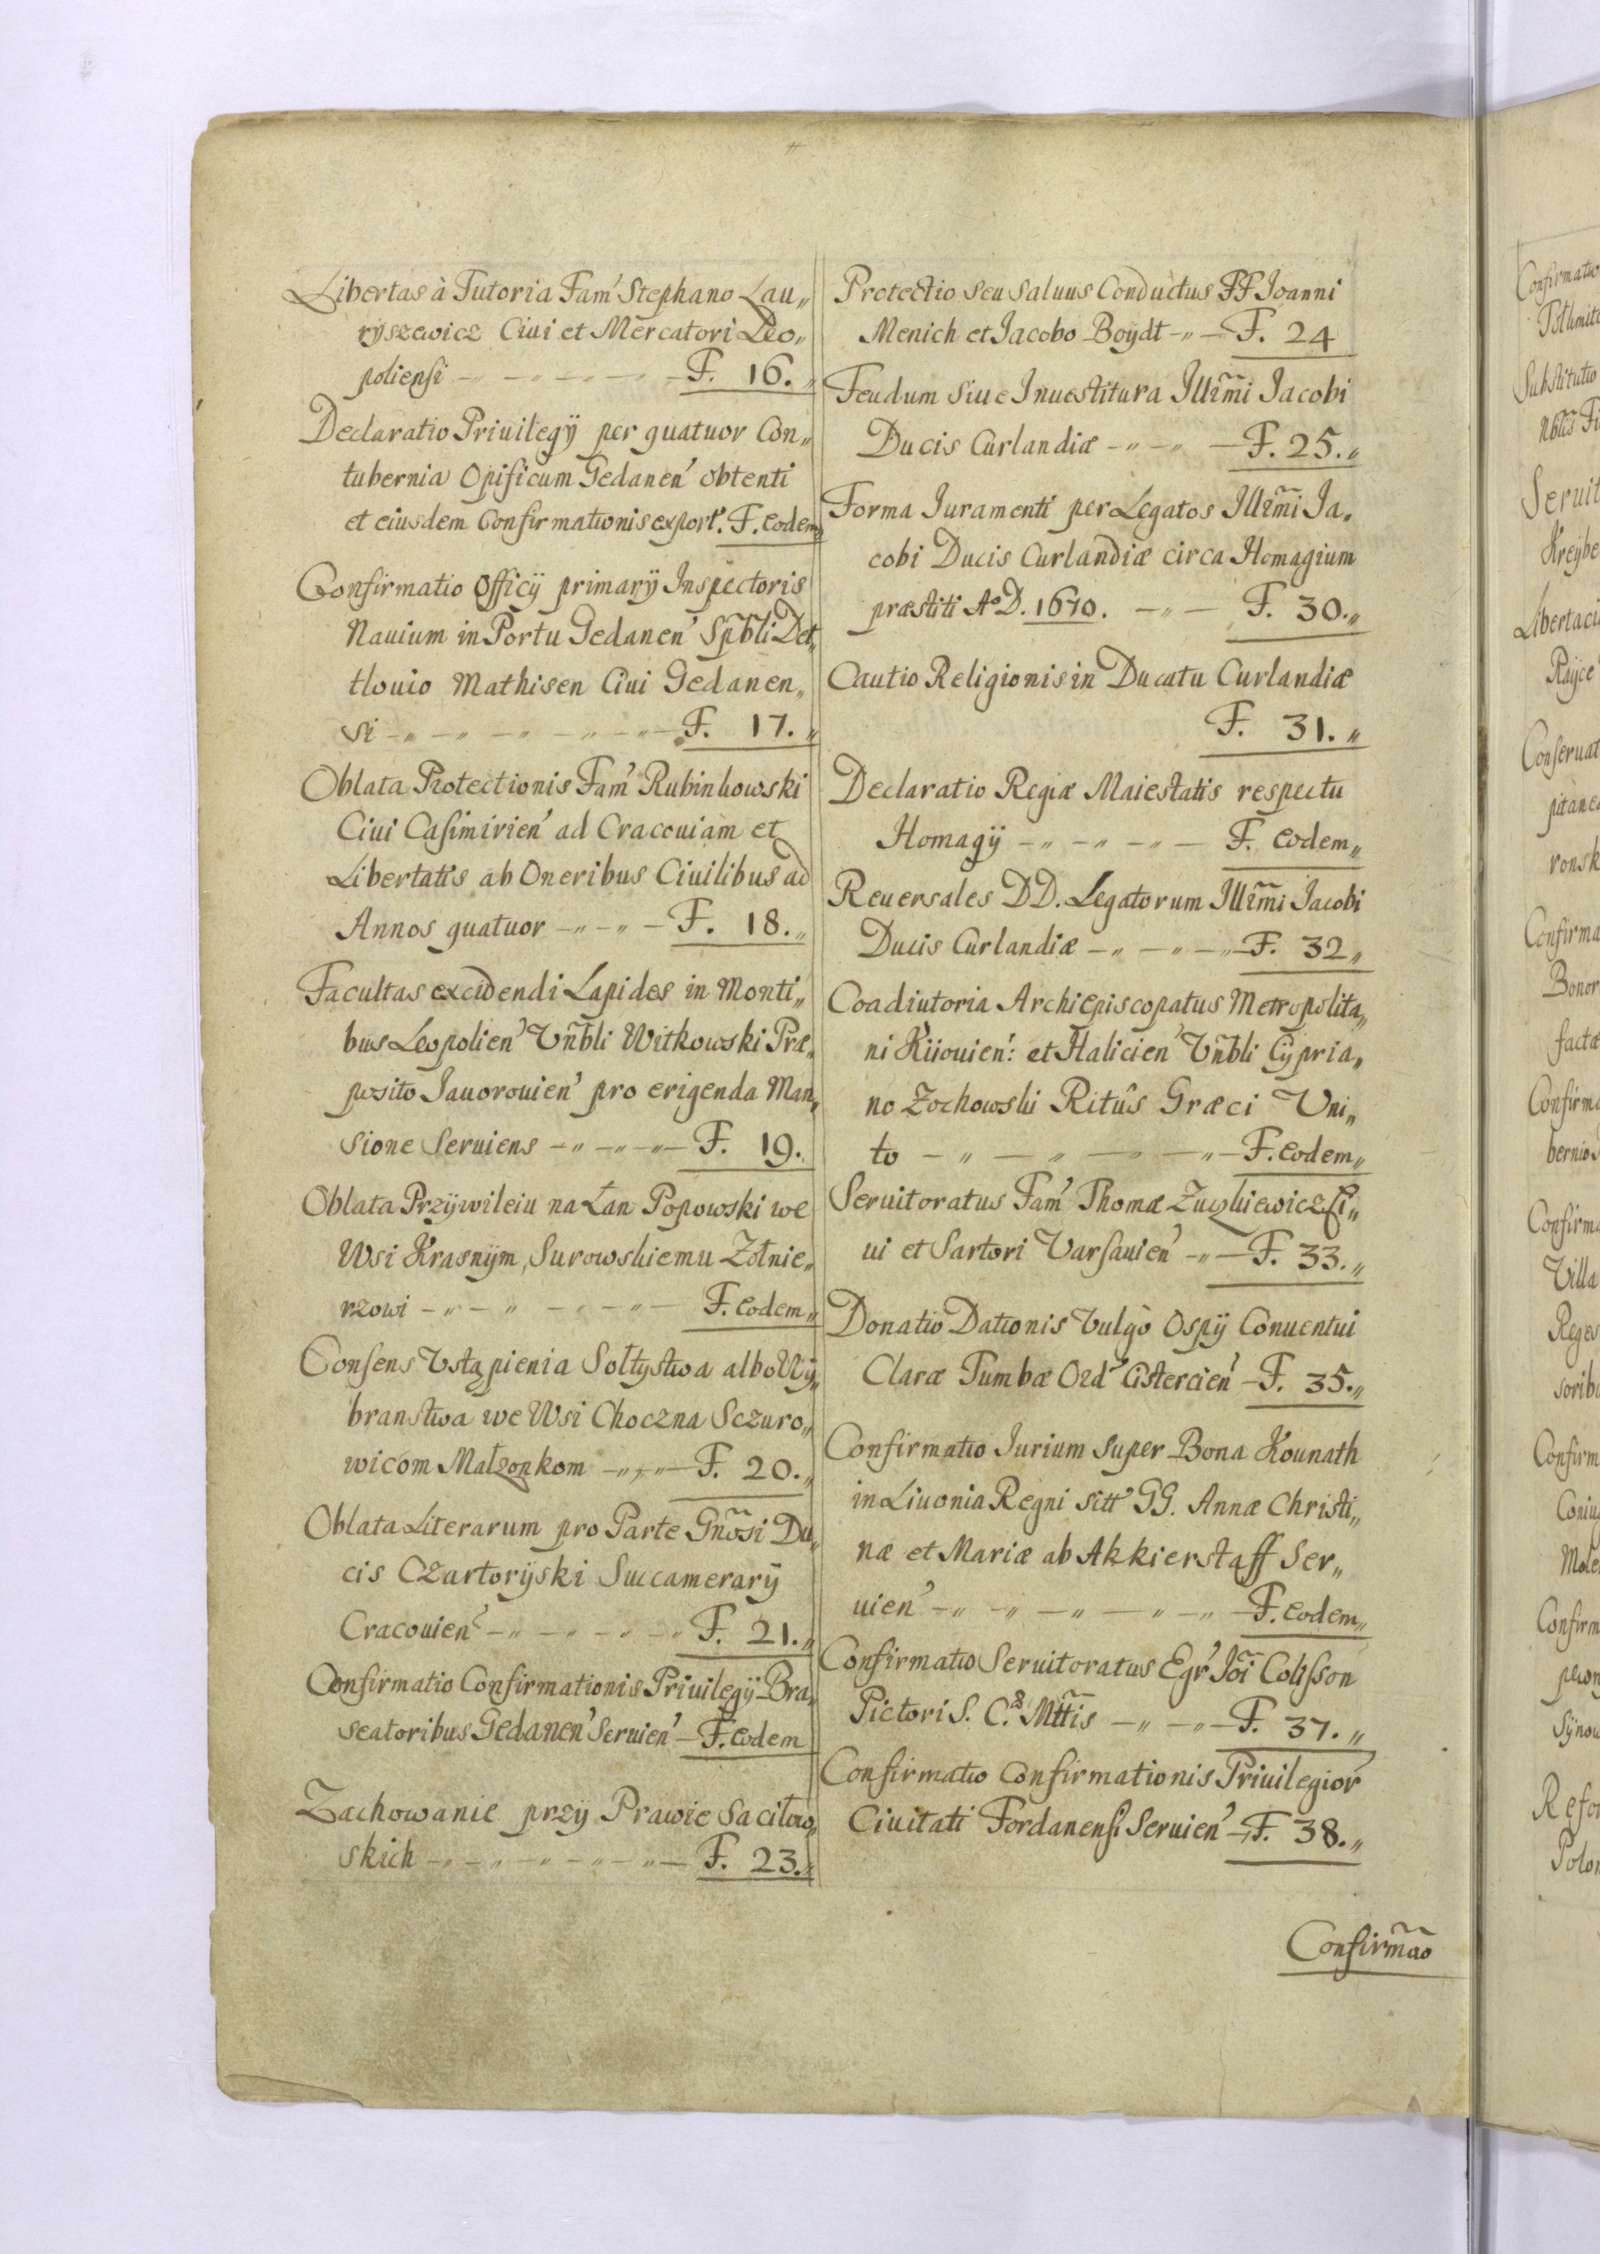 Libertas à Tutoria Fam' Stephano Lau„
ryszewicz Ciui et Mercatori Leo„
poliensi — „ — „ — „ — „ — F. 16. „
Declaratio Priuilegÿ per quatuor Con„
tubernia Opificum Gedanen' obtenti
et eiusdem Confirmationis export'. F. eodem„
Confirmatio Officÿ primarÿ Inspectoris
Nauium in Portu Gedanen' Spbli Det„
tlouio Mathisen Ciui Gedanen„
si — „ — „ — „ — „ — „ — F. 17. „
Oblata Protectionis Fam' Rubinkowski
Ciui Casimirien' ad Cracouiam et
Libertatis ab Oneribus Ciuilibus ad
Annos quatuor — „ — „ — F. 18. „
Facultas excidendi Lapides in Monti„
bus Leopolien' Vñbli Witkowski Præ„
posito Jauorouien' pro erigenda Man„
sione Seruiens — „ — „ — „ — F. 19.
Oblata Przÿwileiu na Łan Popowski we
Wsi Krasnÿm, Surowskiemu Żołnie„
rzowi — „ — „ — „ — „ — F. eodem„
Consens Vstąpienia Sołtystwa albo Wÿ„
branstwa we Wsi Choczna Sczuro„
wicom Małzonkom — „ — „ — F. 20. „
Oblata Literarum pro Parte Gñosi Du„
cis Czartorÿski Succamerarÿ
Cracouien' — „ — „ — „ — „ F. 21. „
Confirmatio Confirmationis Priuilegÿ Bra„
seatoribus Gedanen' Seruien' — F. eodem
Zachowanie przÿ Prawie Sacitow„
skich — „ — „ — „ — „ — „ — F. 23. „
Protectio seu saluus Conductus FF Joanni
Menich et Jacobo Boÿdt — „ — F. 24
Feudum siue Inuestitura Illr̃mi Jacobi
Ducis Curlandiæ — „ — „ — F. 25. „
Forma Juramenti per Legatos Illr̃mi Ja„
cobi Ducis Curlandiæ circa Homagium
præstiti Aº D. 1670. — „ — F. 30. „
Cautio Religionis in Ducatu Curlandiæ
F. 31. „
Declaratio Regiæ Maiestatis respectu
Homagÿ — „ — „ — „ — F. eodem„
Reuersales DD. Legatorum Illr̃mi Jacobi
Ducis Curlandiæ — „ — „ — „ — F. 32„
Coadiutoria Archiepiscopatus Metropolita„
ni Kiiouien': et Halicien' Vñbli Cypria„
no Zochowski Ritûs Græci Vni„
to — „ — „ — „ — „ — F. eodem„
Seruitoratus Fam' Thomæ Ci„
ui et Sartori Varsauien' — „ — F. 33. „
Donatio Dationis Vulgò Ospÿ Conuentui
Claræ Tumbæ Ord' Cistercien' — F. 35. „
Confirmatio Jurium super Bona Kounath
in Liuonia Regni sitt' GG. Annæ Christi„
næ et Mariæ ab Akkierstaff Ser„
uien' — „ — „ — „ — „ — „ — F. eodem„
Confirmatio Seruitoratus Egr' Joĩ
Pictori S. C. Mttis — „ — „ — F. 37. „
Confirmatio Confirmationis Priuilegior'
Ciuitati Fordanensi Seruien' — F. 38. „
Confirm̃ao
Confirmatio
Substitutio
Seruit
Kreÿbe
Libertaci
Raÿce
Conseruat
pitanea
ronsk
Confirma
Bonor
facta
Confirma
bernio
Confirma
Villa
Reges
sorib
Confirm
Coniu
Confirm
Sÿnow
Refor
Polon